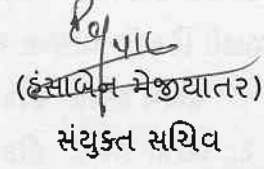 (હંસાબેન મેજીયાતર)
સંયુક્ત સચિવ